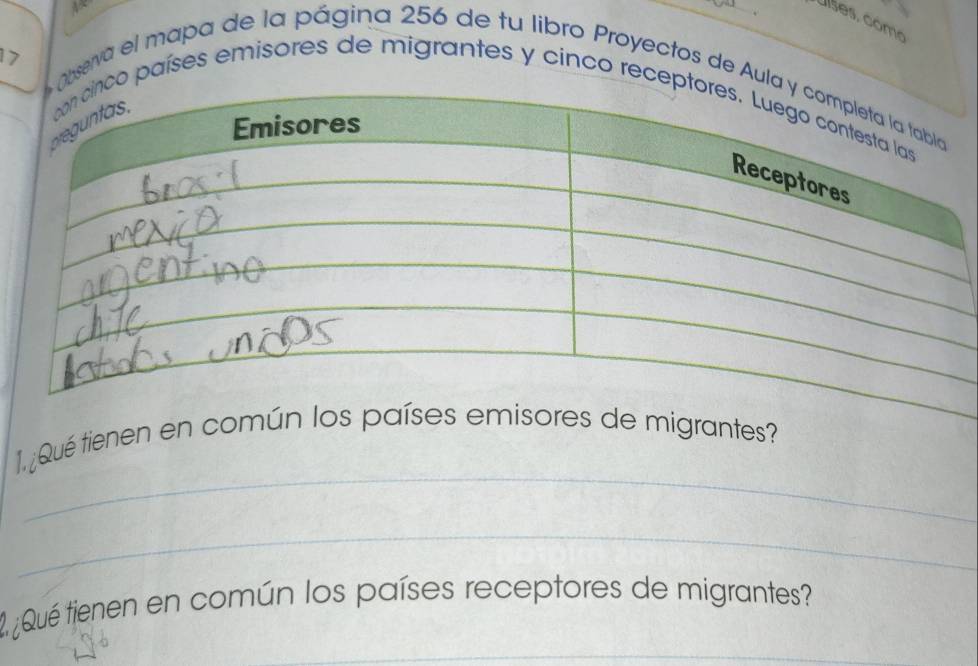 aíses, como
17
Observa el mapa de la página 256 de tu libro Proyectos de Aula y completa la tabla
con cinco países emisores de migrantes y cinco receptores. Luego contesta las
preguntas.
Emisores
Receptores
brasil
mexico
argentina
chile
unidos
1. ¿Qué tienen en común los países emisores de migrantes?
2. ¿Qué tienen en común los países receptores de migrantes?